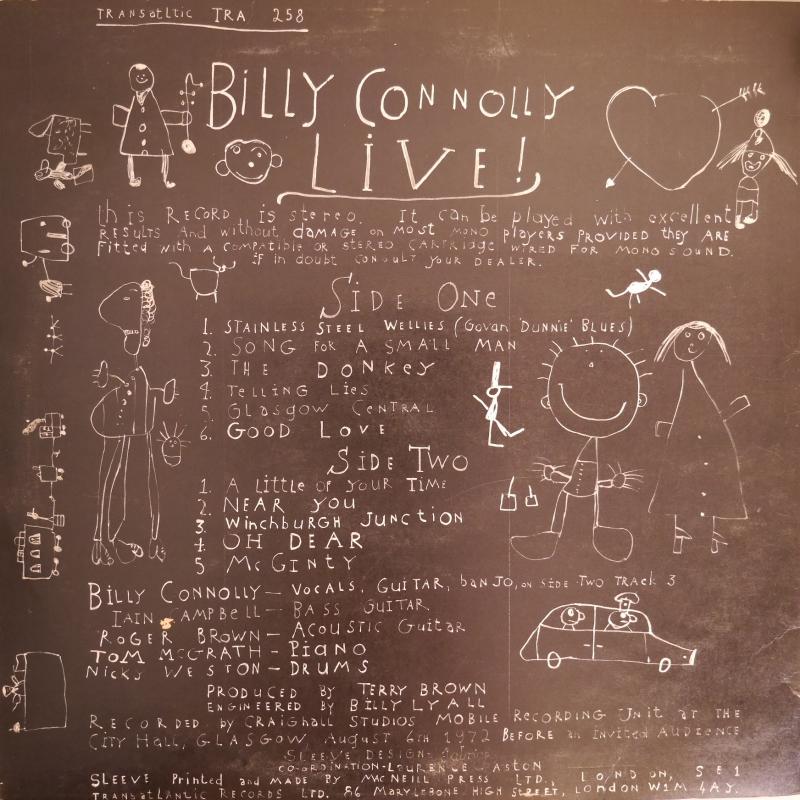 TRANSatltic TRA 258
BiLLY CONNOLLY
LiVE!
this is RECORD is stereo. It can be played with excellent
RESULTS And without DAMAGE on MOST MONO players PROVIDED they ARE
Fitted with A COMPATIBLE OR STEREO CARTRIDGE WIRED FOR MONO SOUND.
if in doubt CONSULT YOUR DEALER.
SiDE ONE
1. STAINLESS STEEL WELLIES (Govan 'DUNNiE' BLUES)
2. SONG FOR A SMALL MAN
3. THE DONKEY
4. TELLING LIES
5. GLASGOW CENTRAL
6. GOOD LOVE
SiDE TWO
1. A Little OF YOUR TIME
2. NEAR YOU
3. WinchbURGH JUNCTION
4. OH DEAR
5 Mc GINTY
BILLY CONNOLLY — VOCALS, GUITAR, banJO, ON SIDE TWO TRACK 3
IAIN CAMPBELL — BASS GUITAR
ROGER BROWN — ACOUSTIC GUitAR
TOM McGRATH — PIANO
NICKY WESTON — DRUMS
PRODUCED BY TERRY BROWN
ENGINEERED BY BILLY LYALL
RECORDED by CRAIGhall STUDIOS MOBILE RECORDING UNit AT THE
CITY HALL, GLASGOW, AUGUST 6TH 1972 BEFORE AN INVITED AUDIENCE
SLEEVE DESIGN:
CO-ORDINATION - LAURENCE ASTON
SLEEVE Printed and MADE BY McNEILL PRESS LTD., LONDON, SE1
TRANSATLANTIC RECORDS LTD. 86 MARYLEBONE HIGH STREET, LONDON W1M 4AY.